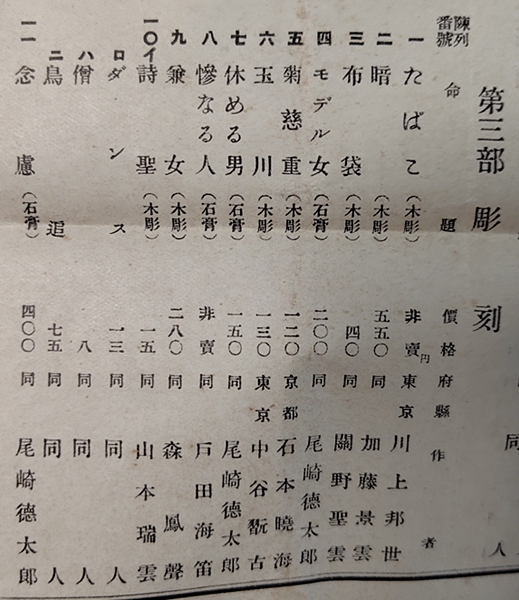 同 人
第三部 彫刻
陳列番號 命題 價格 府縣 作者
一 たばこ (木彫) 非賣円 東京 川上邦世
二 暗 (木彫) 五五〇 同 加藤景雲
三 布袋 (木彫) 四〇 同 關野聖雲
四 モデル女 (石膏) 二〇〇 同 尾崎德太郎
五 菊慈重 (木彫) 一二〇 京都 石本曉海
六 玉川 (木彫) 一三〇 東京 中谷翫古
七 休める男 (石膏) 一五〇 同 尾崎德太郎
八 慘なる人 (石膏) 非賣 同 戸田海笛
九 兼女 (木彫) 二八〇 同 森鳳聲
一〇イ 詩聖 (木彫) 一五 同 山本瑞雲
ロ ダンス 一三 同 同人
ハ 僧 八 同 同人
ニ 鳥追 七五 同 同人
一一 念慮 (石膏) 四〇〇 同 尾崎德太郎